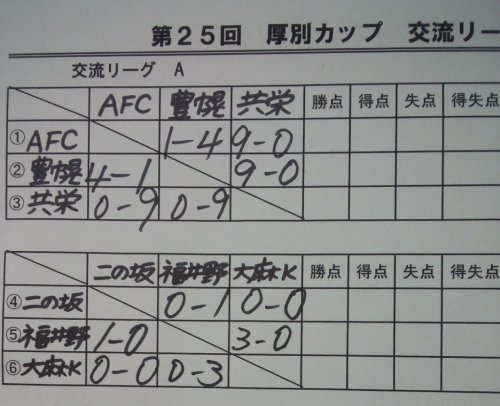 第２５回 厚別カップ 交流リー
交流リーグ A
AFC 豊幌 共栄 勝点 得点 失点 得失点
①AFC 1-4 9-0
②豊幌 4-1 9-0
③共栄 0-9 0-9
二の坂 福井野 大麻K 勝点 得点 失点 得失点
④二の坂 0-1 0-0
⑤福井野 1-0 3-0
⑥大麻K 0-0 0-3